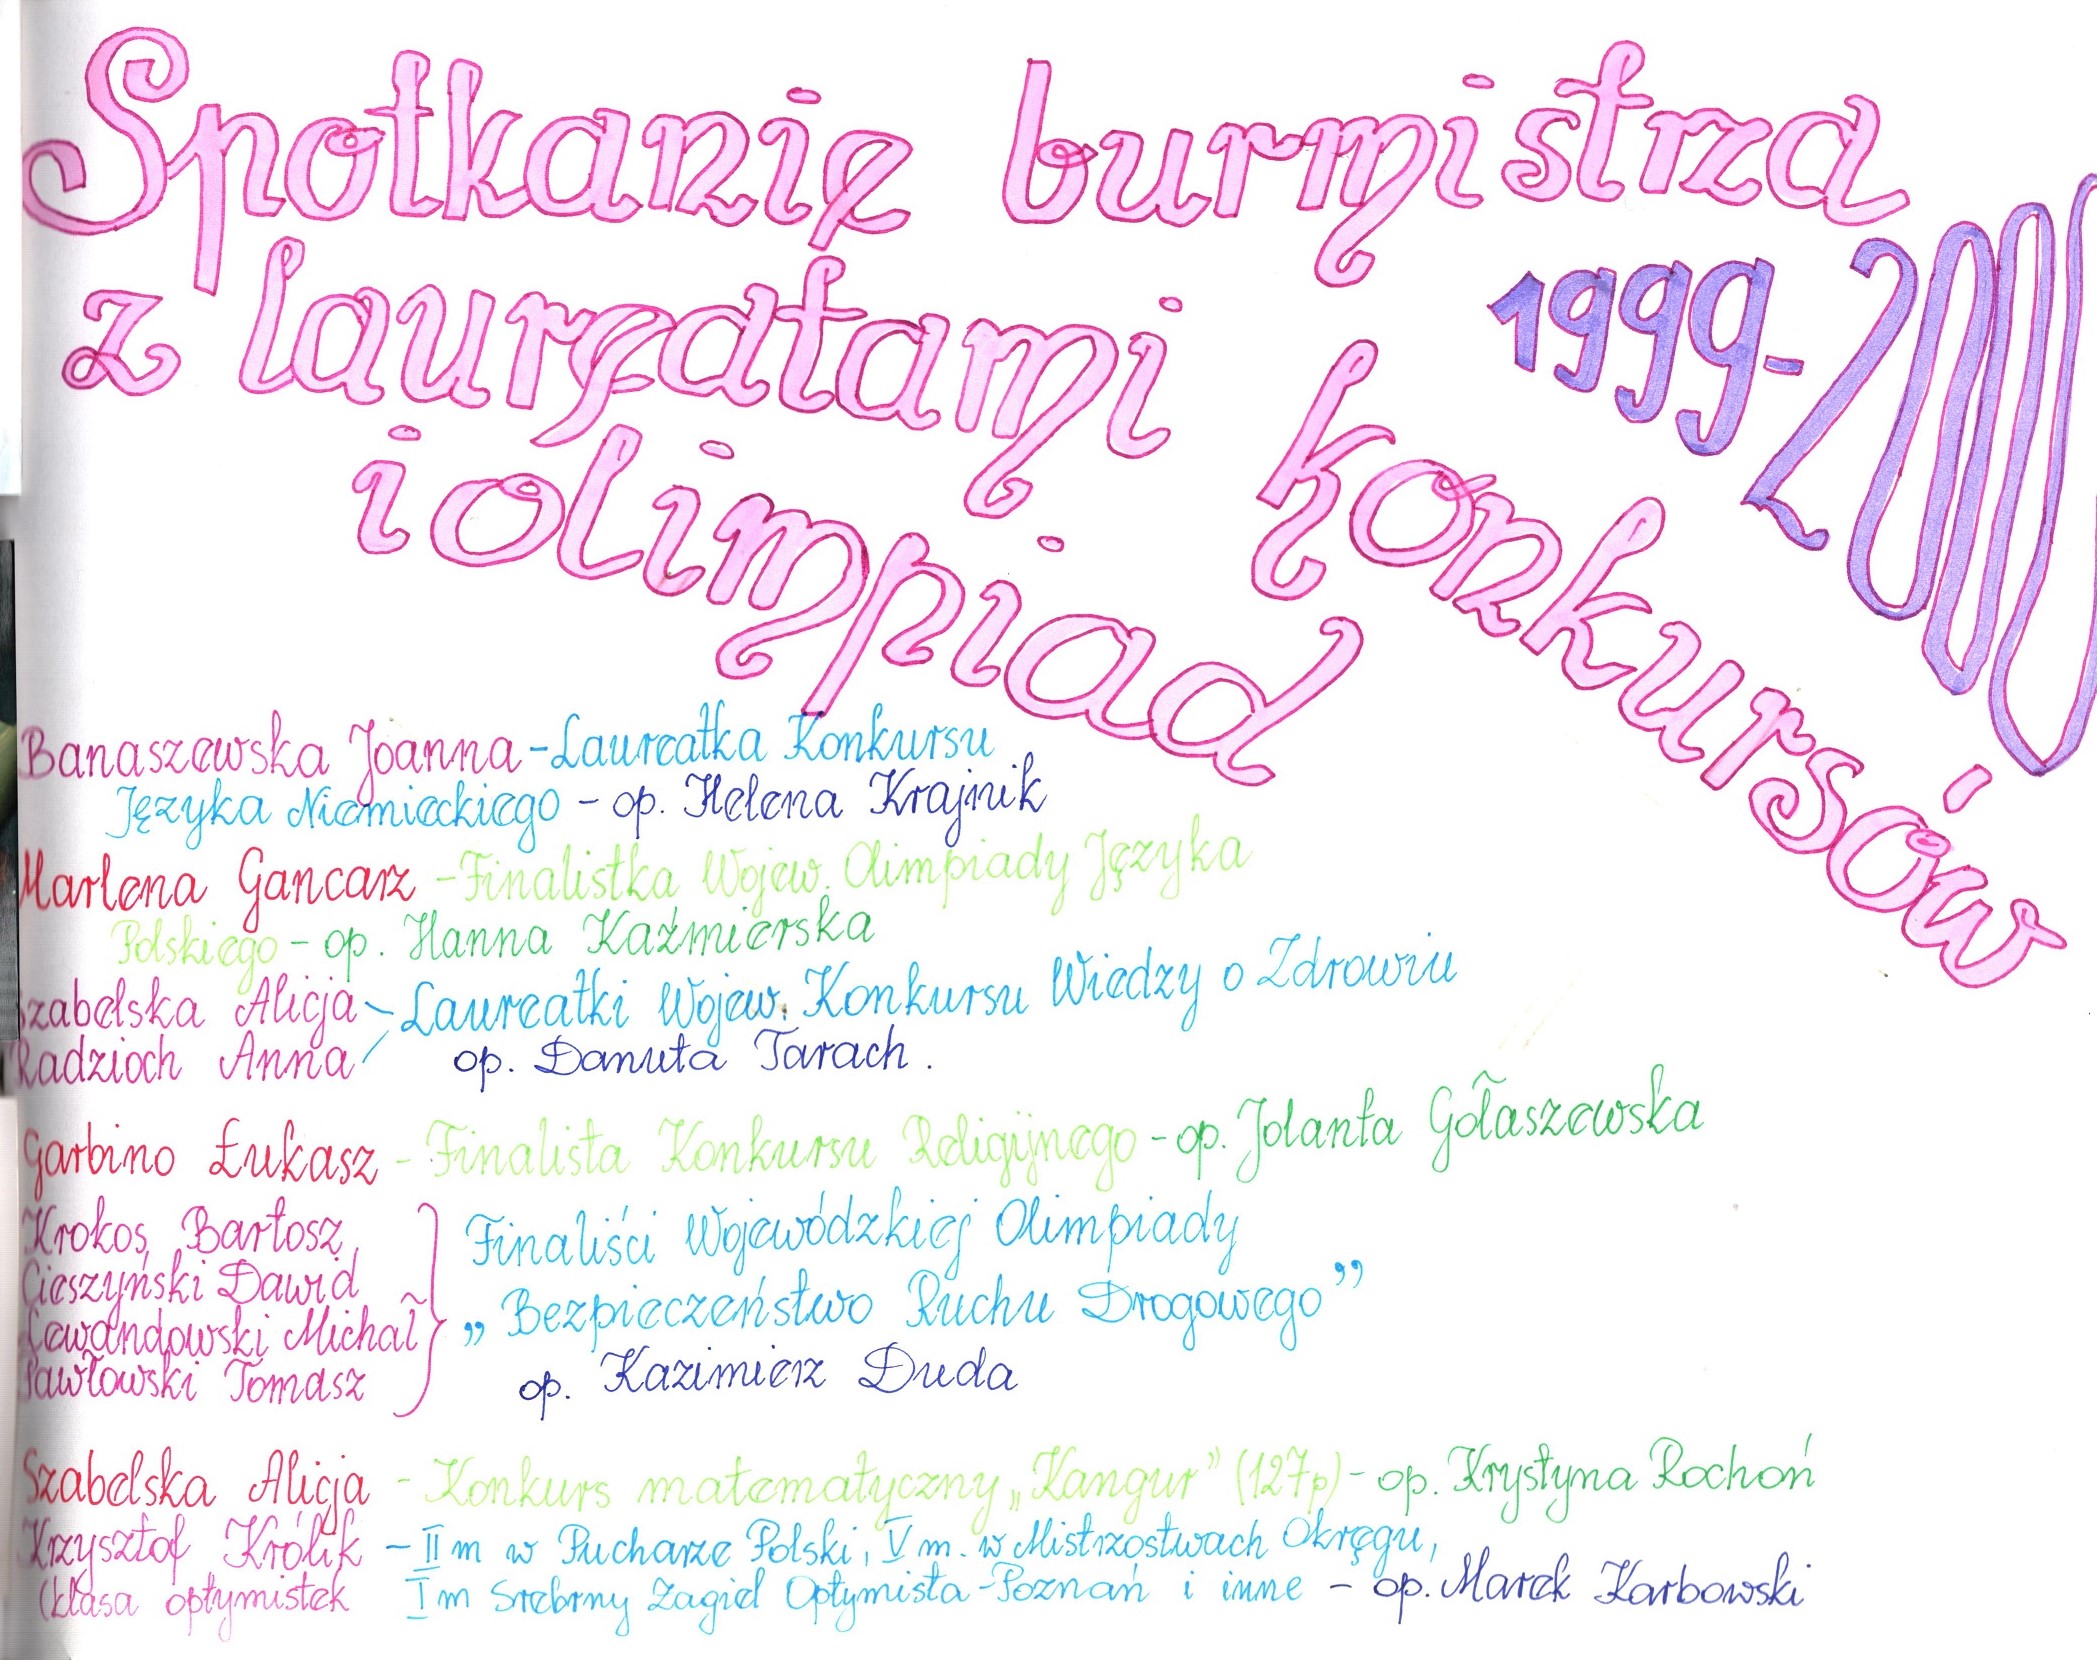 Spotkanie burmistrza
z laureatami konkursów
i olimpiad
1999-2000
Banaszewska Joanna - Laureatka Konkursu
Języka Niemieckiego - op. Helena Krajnik
Marlena Gancarz - Finalistka Wojew. Olimpiady Języka
Polskiego - op. Hanna Kaźmierska
Szabelska Alicja - Laureatki Wojew. Konkursu Wiedzy o Zdrowiu
Radzioch Anna op. Danuta Tarach.
Garbino Łukasz - Finalista Konkursu Religijnego - op. Jolanta Gołaszewska
Krokos Bartosz,
Cieszyński Dawid
Lewandowski Michał
Pawłowski Tomasz
Finaliści Wojewódzkiej Olimpiady
„Bezpieczeństwo Ruchu Drogowego”
op. Kazimierz Duda
Szabelska Alicja - Konkurs matematyczny „Kangur” (127p) - op. Krystyna Rochoń
Krzysztof Królik - II m w Pucharze Polski, V m. w Mistrzostwach Okręgu,
(klasa optymistek I m Srebrny Żagiel Optymista - Poznań i inne - op. Marek Karbowski